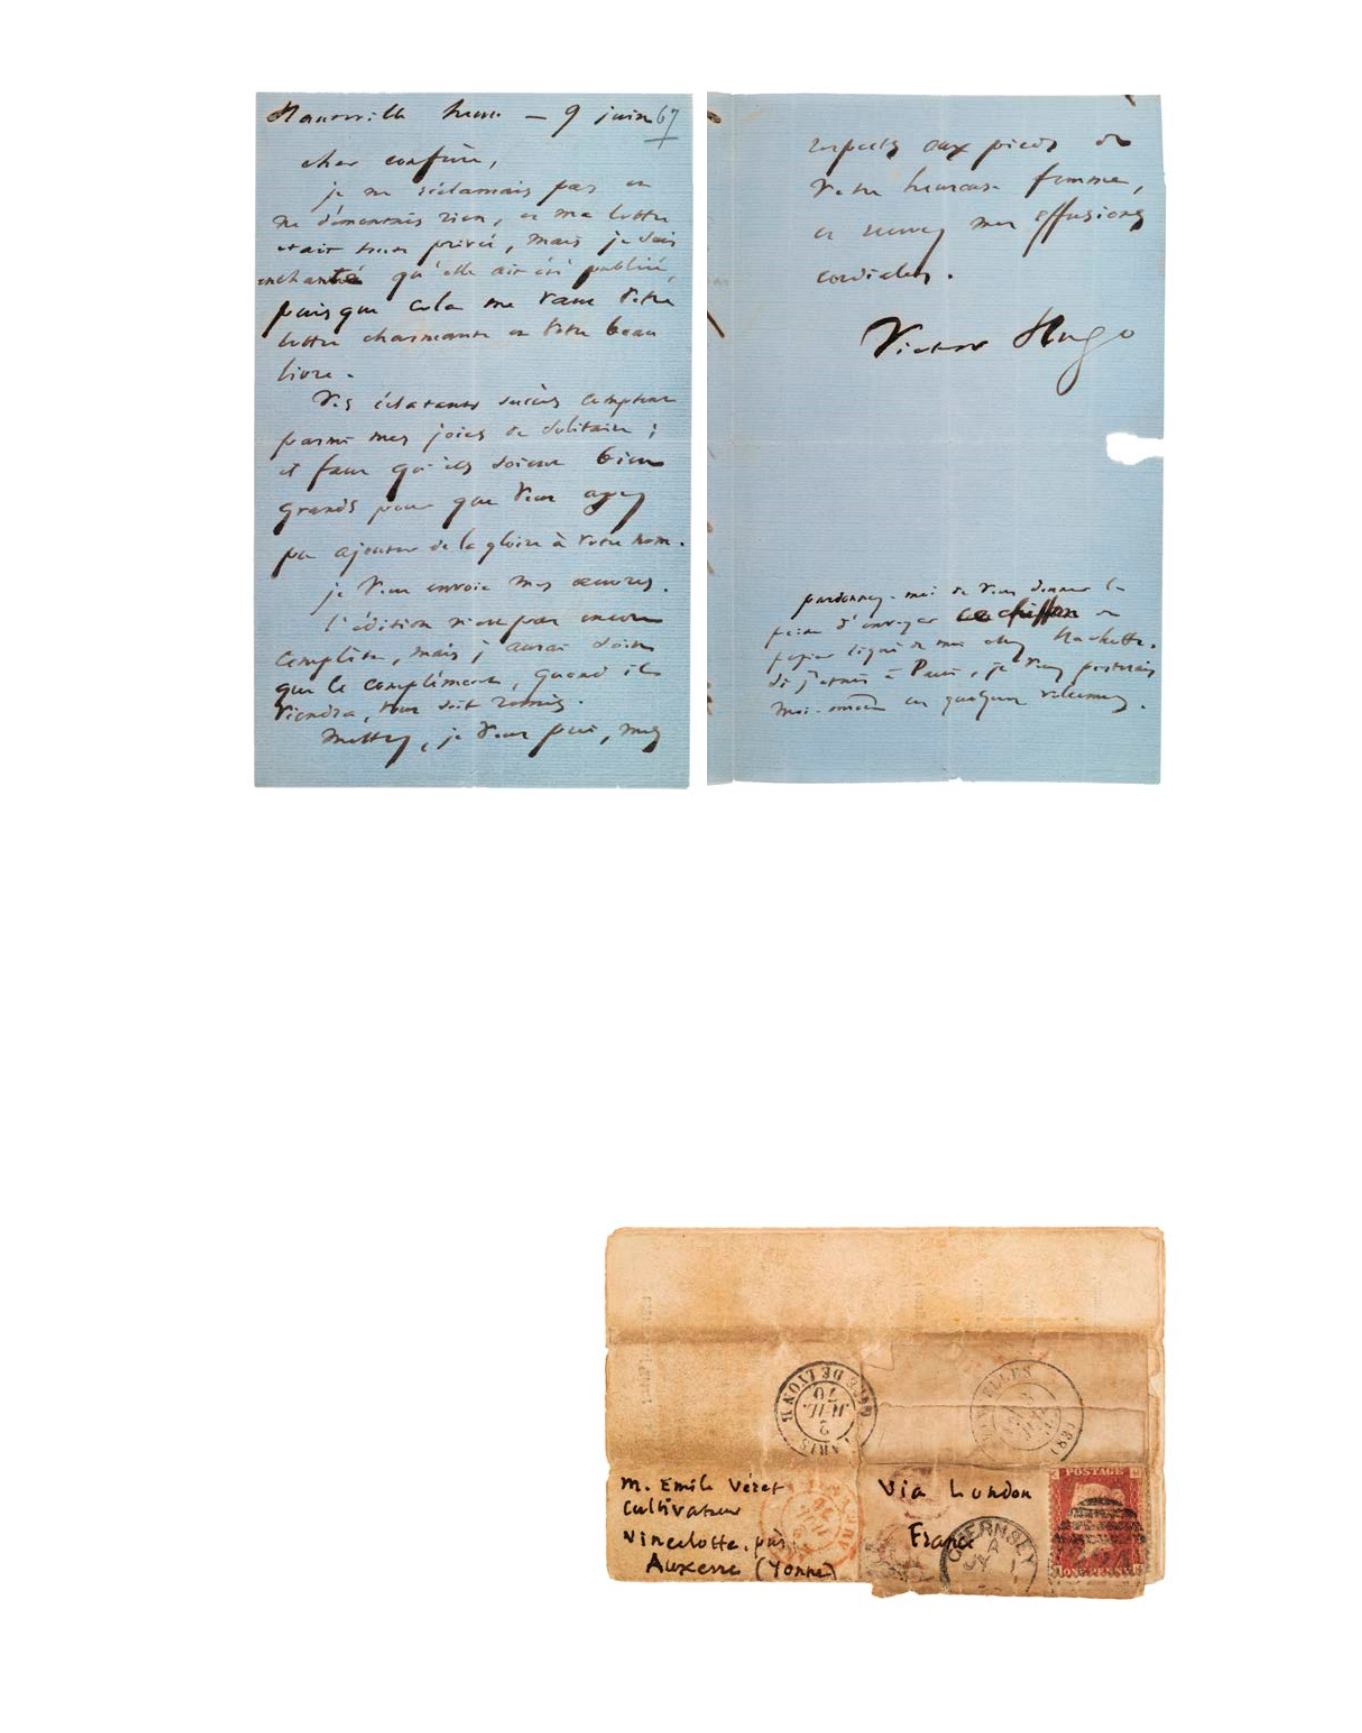 Hauteville house — 9 juin 67
cher confrère,
je ne réclamais pas et
ne démentais rien, et ma lettre
était toute privée, mais je suis
enchanté qu'elle ait été publiée,
puisque cela me vaut votre
lettre charmante et votre beau
livre.
Vos éclatants succès comptent
parmi mes joies de solitaire ;
et faut qu'ils soient bien
grands pour que vous ayez
pu ajouter de la gloire à votre nom.
je vous envoie mes œuvres.
l'édition n'est pas encore
complète, mais j'aurai soin
que le complément, quand il
viendra, vous soit remis.
Mettez, je vous prie, mes
respects aux pieds de
votre heureuse femme,
et recevez mes effusions
cordiales.
Victor Hugo
pardonnez-moi de vous donner la
peine d'envoyer ce chiffon de
papier signé de moi chez Hachette.
si j'étais à Paris, je vous porterais
moi-même ces quelques volumes.
PARIS
GARE DE LYON
2
JUIL.
70
(89)
M. Emile Véret
Cultivateur
Vincelotte, par
Auxerre (Yonne)
Via London
France
GUERNSEY
A
JY 1
POSTAGE
ONE PENNY